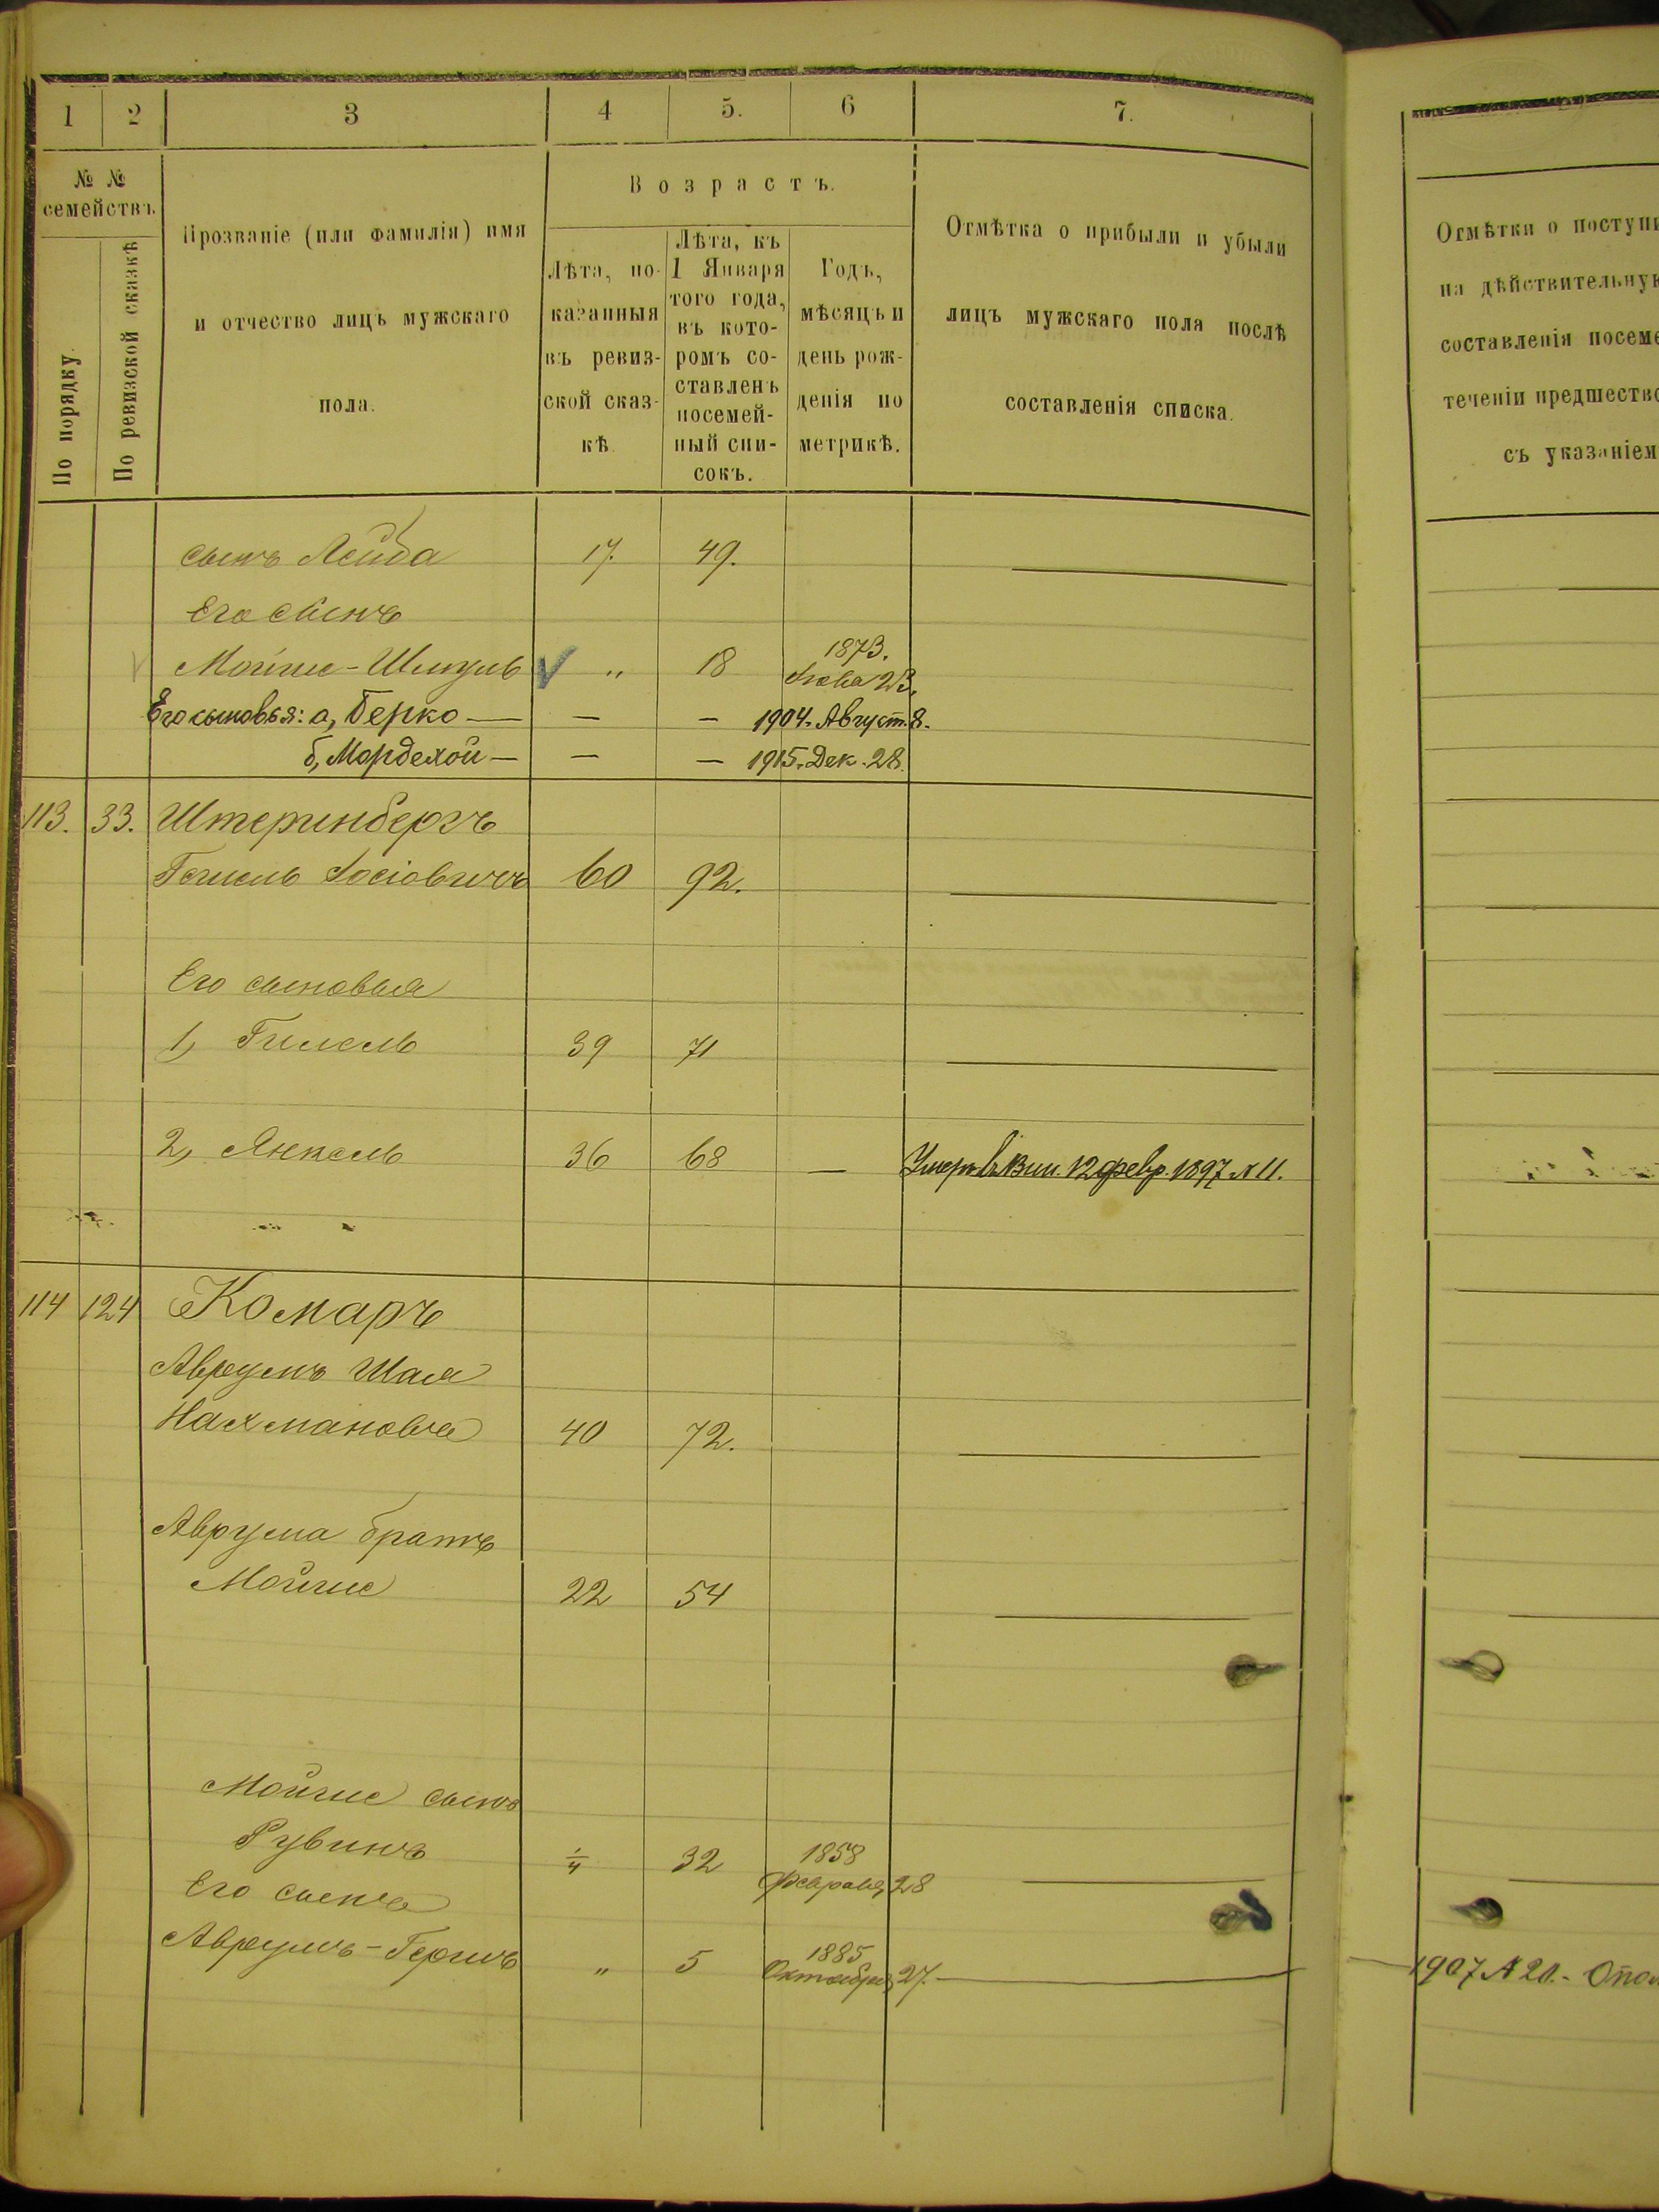 1 2 3 4 5. 6 7.
№ № семействъ
По порядку.
По ревизской сказкѣ
Прозваніе (или фамилія) имя
и отчество лицъ мужскаго
пола.
Возрастъ.
Лѣта, по-
казанныя
въ ревиз-
ской сказ-
кѣ.
Лѣта, къ
1 Января
того года,
въ кото-
ромъ со-
ставленъ
посемей-
ный спи-
сокъ.
Годъ,
мѣсяцъ и
день рож-
денія по
метрикѣ.
Отмѣтка о прибыли и убыли
лицъ мужскаго пола послѣ
составленія списка.
сынъ Лейба 17. 49.
Его сынъ
Мойше-Шмуль " 18 1873.
23.
Его сыновья: а, Берко — — — 1904. Август. 8.
б, Мордехой — — — 1915. Дек. 28.
113. 33. Штеринбергъ
Іосіовичъ 60 92.
Его сыновья
1, Гилель 39 71
2, Янкель 36 68 — Умеръ въ Вин. 12 февр. 1897 № 11.
114 124 Комаръ
Аврумъ Шая
Нахмановъ 40 72.
Аврума братъ
Мойше 22 54
Мойше сынъ
Рувинъ 1/4 32 1858
Февраля, 28
Его сынъ
Аврумъ-Гершъ " 5 1885
Октября, 27.
Отмѣтки о поступи
на дѣйствительную
составленія посеме
теченіи предшество
съ указаніем
1907 № 20.- Опол